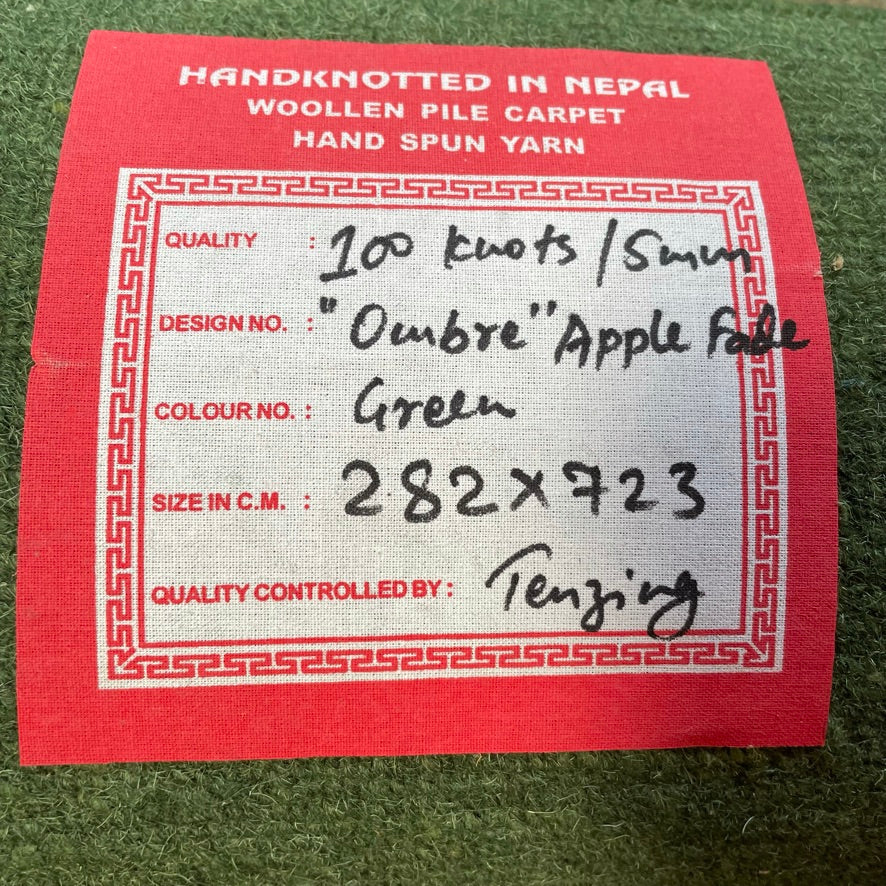 HANDKNOTTED IN NEPAL
WOOLLEN PILE CARPET
HAND SPUN YARN
QUALITY : 100 knots / 5mm
DESIGN NO. : "Ombre" Apple Fade
COLOUR NO. : Green
SIZE IN C.M. : 282 x 723
QUALITY CONTROLLED BY : Tenzing